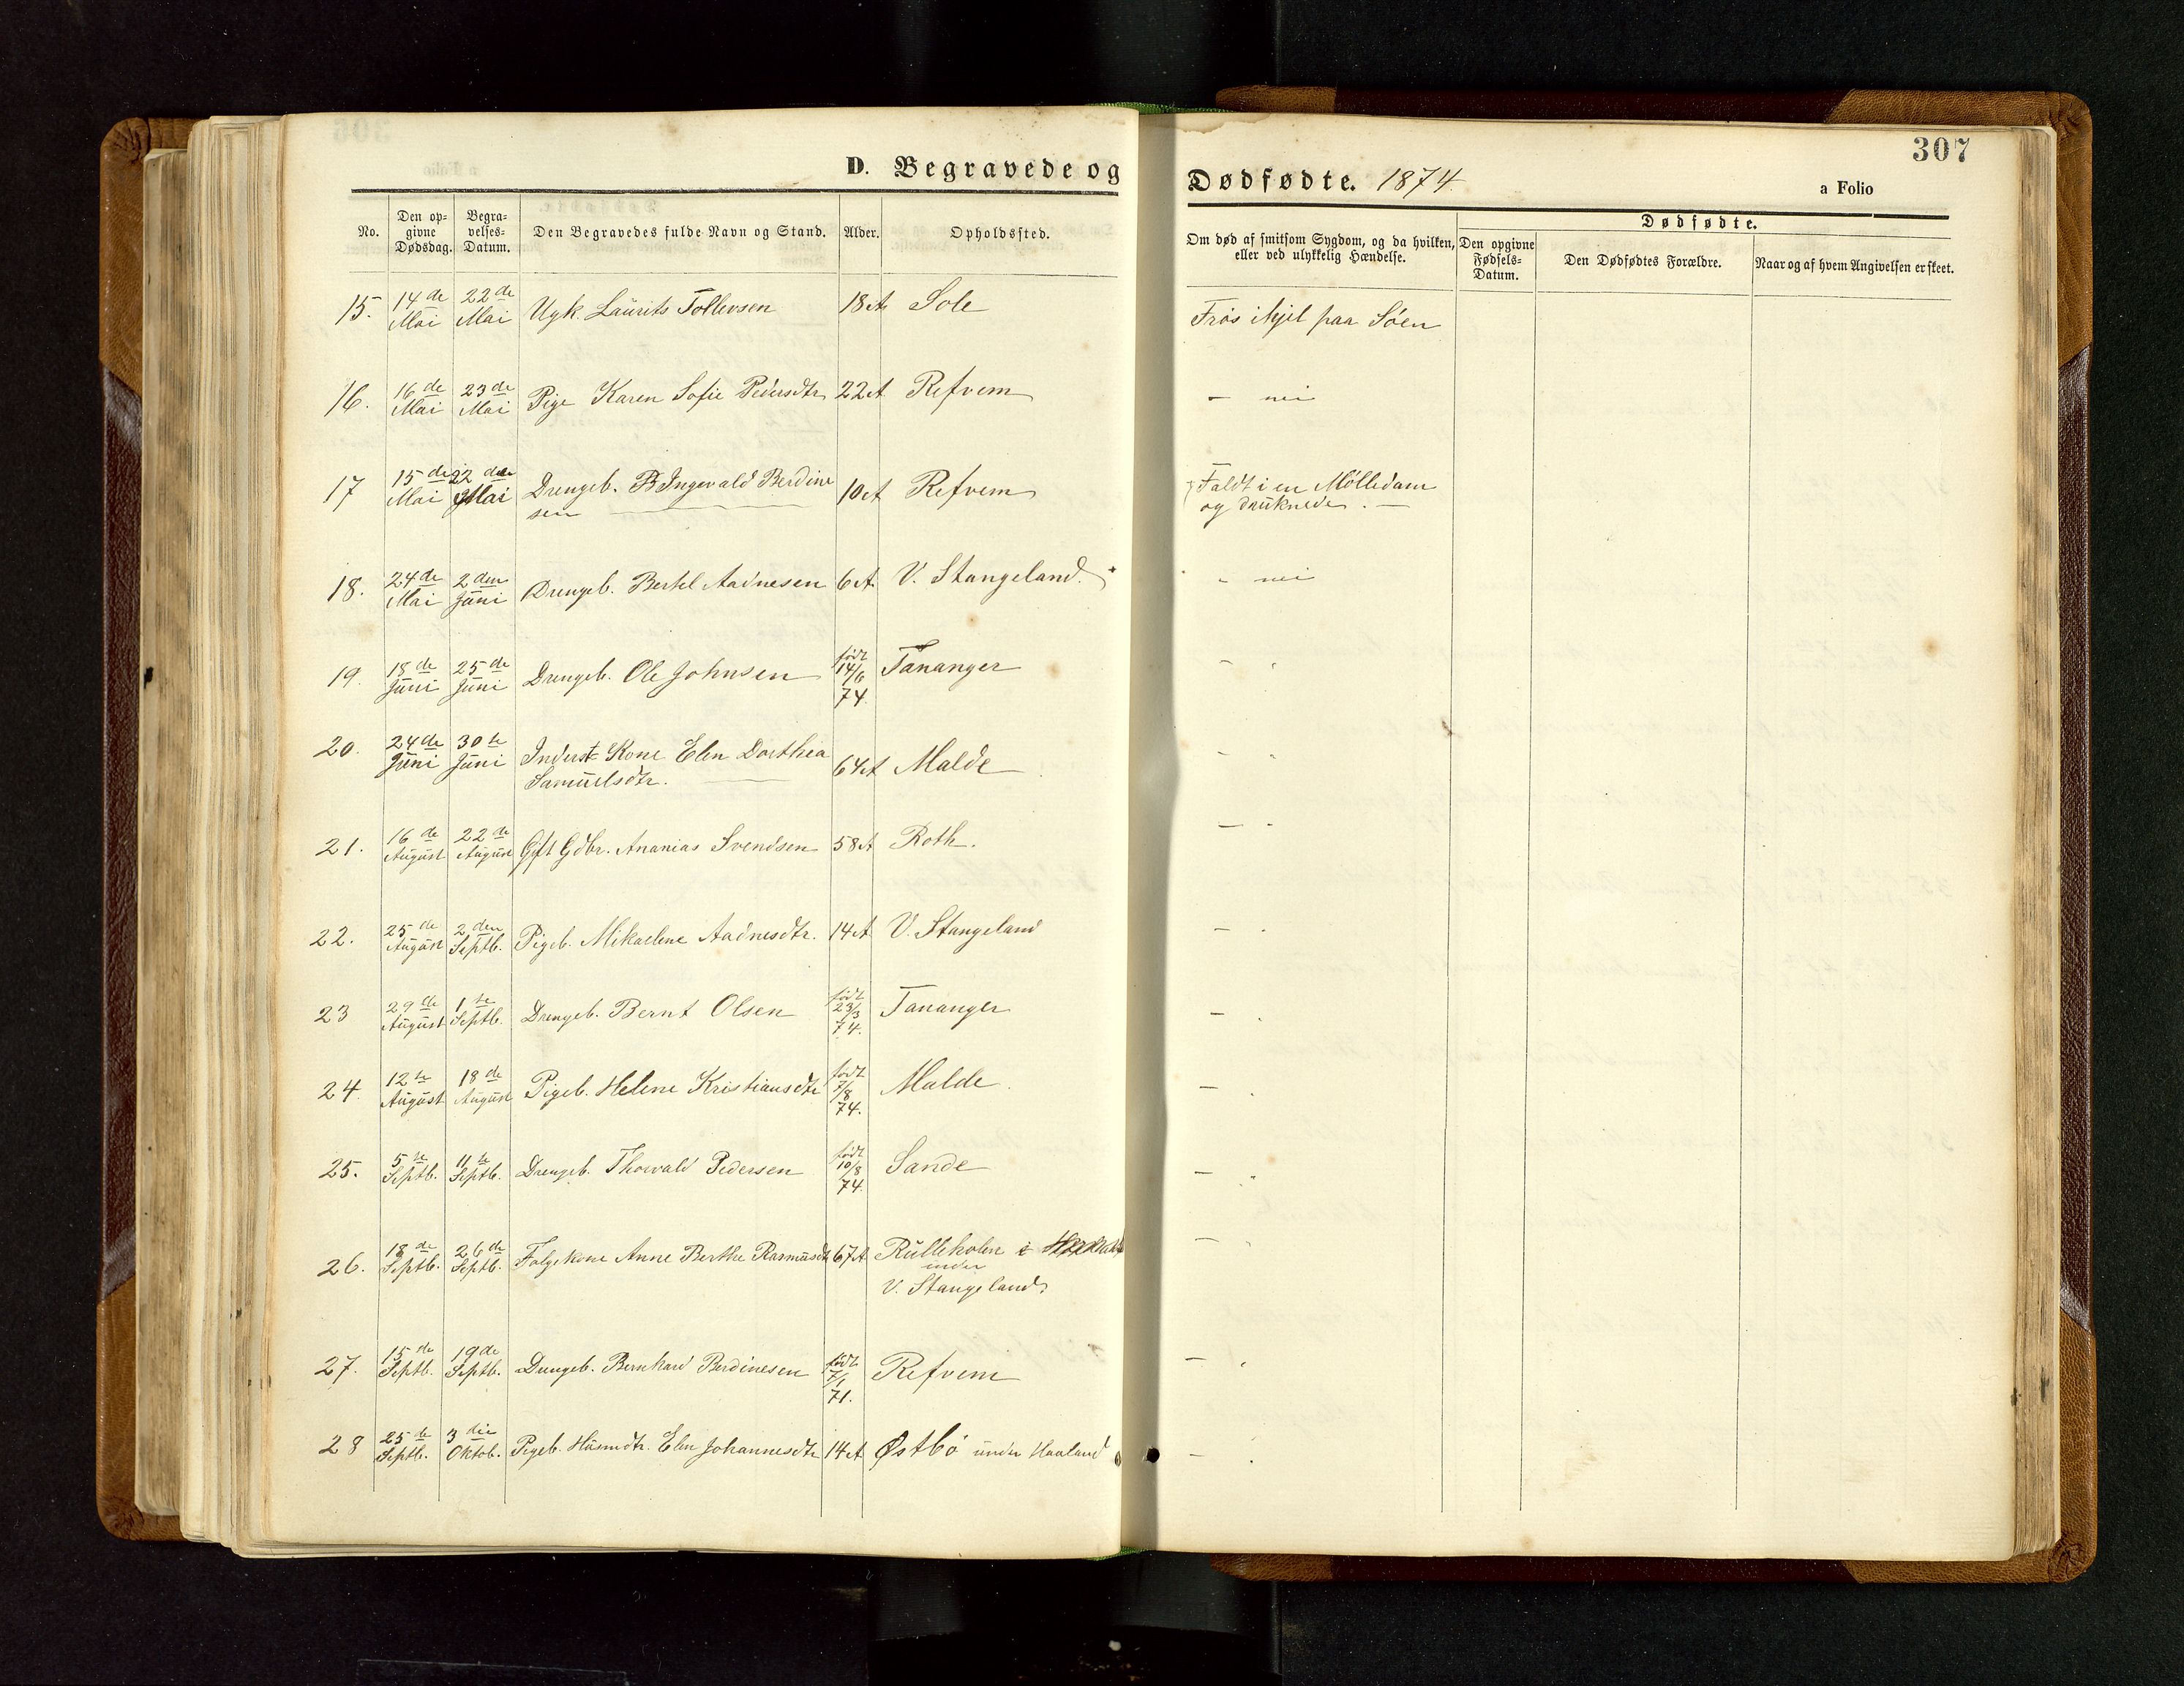 D. Begravede og Dødfødte. 1874
307
a Folio
No. Den opgivne Dødsdag. Begravelses-Datum. Den Begravedes fulde Navn og Stand. Alder. Opholdssted. Om død af smitsom Sygdom, og da hvilken, eller ved ulykkelig Hændelse. Dødfødte. Den opgivne Fødsels-Datum. Den Dødfødtes Forældre. Naar og af hvem Angivelsen er skeet.
15. 14de Mai 22de Mai Ugk. Laurits Tollevsen 18 A Sole Frøs ihjel paa Søen
16. 16de Mai 23de Mai Pige Karen Sofie Pedersdtr 22 A Refvem - nei
17 15de Mai 22 den Mai Drengeb. B Ingevald Berdinesen 10 A Refvem Faldt i en Mølledam og druknede. -
18. 24de Mai 2den Juni Drengeb. Bertel Aadnesen 6 A. V. Stangeland. - nei
19. 18de Juni 25de Juni Drengeb. Ole Johnsen født 14/6 74. Tananger - "
20. 24de Juni 30te Juni Inderst Kone Elen Dorthea Samuelsdtr. 64 A Malde - "
21. 16de August 22de August Gift Gdbr. Ananias Svendsen 58 A Roth. - "
22. 25de August 2den Septb. Pigeb. Mikaeline Aadnesdtr. 14 A V. Stangeland - "
23 29de August 1te Septb. Drengeb. Bernt Olsen født 23/3 74. Tananger - "
24. 12te August 18de August Pigeb. Helene Kristiansdtr født 7/8 74. Malde. - "
25. 5te Septb. 11te Septb. Drengeb. Thorvald Pedersen født 10/8 74. Sande - "
26. 18de Septb. 26de Septb. Folgekone Anne Berthe Rasmusdtr 67 A Rulleholen i under V. Stangeland - "
27. 15de Septb. 19de Septb. Drengeb. Bernhard Berdinesen født 7/1 71. Refvem - "
28 25de Septb. 3die Oktob. Pigeb. Husmdtr. Elen Johannesdtr 14 A Østbø under Haaland - "